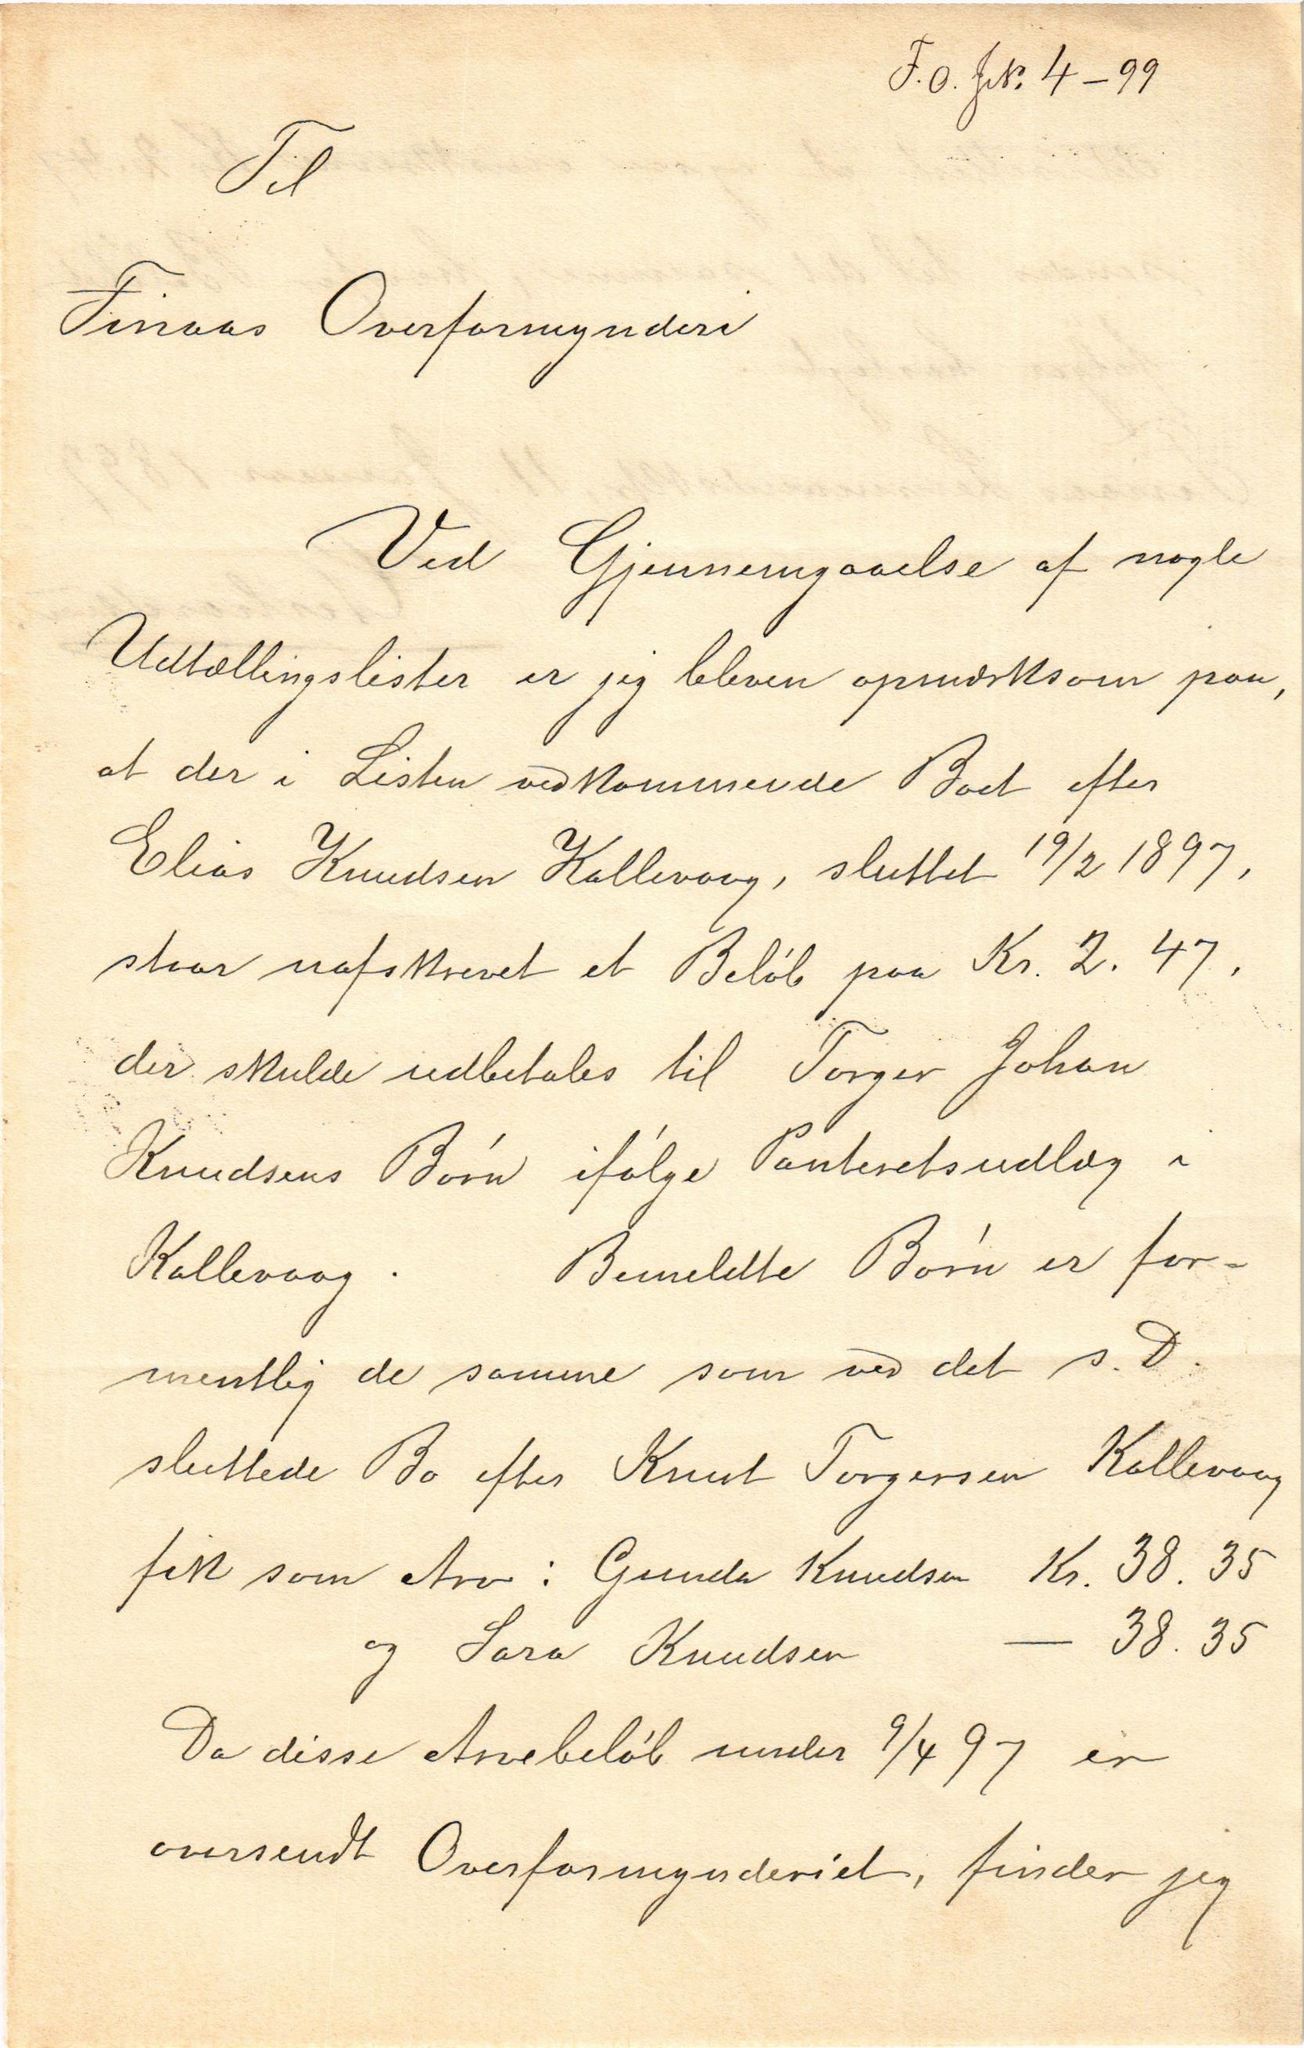 F. O. JN. 4-99
Til
Finaas Overformynderi
Ved Gjennemgaaelse af nogle
Udtællingslister er jeg bleven opmærksom paa,
at der i Listen vedkommende Boet efter
Elias Knudsen Kallevaag, sluttet 19/2 1897,
staar uafskrevet et Beløb paa Kr. 2.47,
der skulde udbetales til Torger Johan
Knudsens Børn ifølge Panteretsudlæg i
Kallevaag. Bemeldte Børn er for-
mentlig de samme som ved det s. D.
sluttede Bo efter Knut Torgersen Kallevaag
fik som Arv: Gunda Knudsen Kr. 38.35
og Sara Knudsen — 38.35
Da disse Arvebeløb under 9/4 97 er
oversendt Overformynderiet, finder jeg